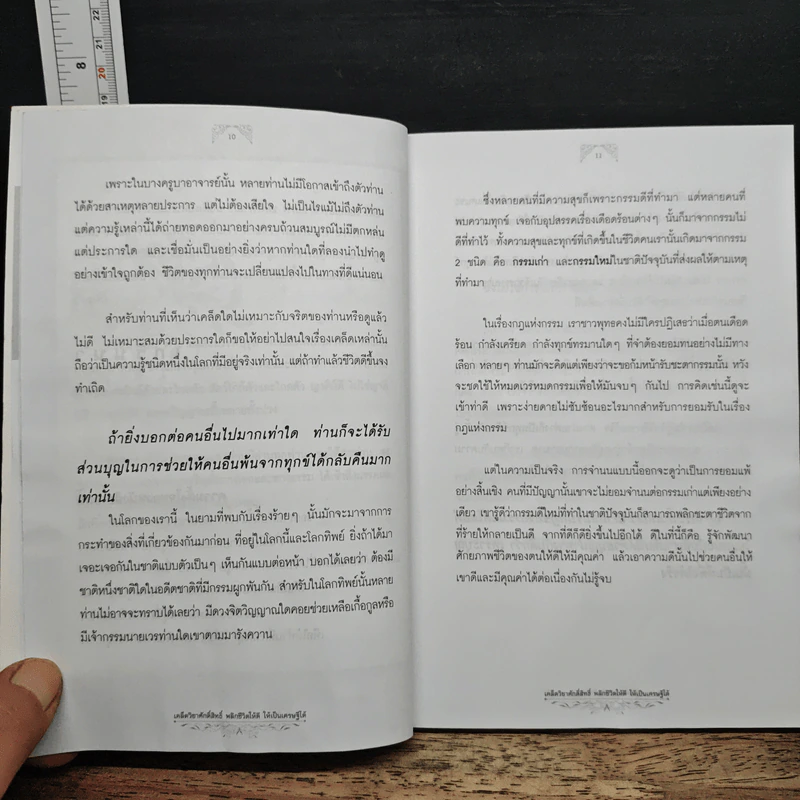 8
22
21
20
19
10
เพราะในบางครูบาอาจารย์นั้น หลายท่านไม่มีโอกาสเข้าถึงตัวท่าน
ได้ด้วยสาเหตุหลายประการ แต่ไม่ต้องเสียใจ ไม่เป็นไรแม้ไม่ถึงตัวท่าน
แต่ความรู้เหล่านี้ได้ถ่ายทอดออกมาอย่างครบถ้วนสมบูรณ์ไม่มีตกหล่น
แต่ประการใด และเชื่อมั่นเป็นอย่างยิ่งว่าหากท่านใดที่ลองนำไปทำดู
อย่างเข้าใจถูกต้อง ชีวิตของทุกท่านจะเปลี่ยนแปลงไปในทางที่ดีแน่นอน
สำหรับท่านที่เห็นว่าเคล็ดใดไม่เหมาะกับจริตของท่านหรือดูแล้ว
ไม่ดี ไม่เหมาะสมด้วยประการใดก็ขอให้อย่าไปสนใจเรื่องเคล็ดเหล่านั้น
ถือว่าเป็นความรู้ชนิดหนึ่งในโลกที่มีอยู่จริงเท่านั้น แต่ถ้าทำแล้วชีวิตดีขึ้นจง
ทำเถิด
ถ้ายิ่งบอกต่อคนอื่นไปมากเท่าใด ท่านก็จะได้รับ
ส่วนบุญในการช่วยให้คนอื่นพ้นจากทุกข์ได้กลับคืนมาก
เท่านั้น
ในโลกของเรานี้ ในยามที่พบกับเรื่องร้ายๆ นั้นมักจะมาจากการ
กระทำของสิ่งที่เกี่ยวข้องกันมาก่อน ที่อยู่ในโลกนี้และโลกทิพย์ ยิ่งถ้าได้มา
เจอะเจอกันในชาติแบบตัวเป็นๆ เห็นกันแบบต่อหน้า บอกได้เลยว่า ต้องมี
ชาติหนึ่งชาติใดในอดีตชาติที่มีกรรมผูกพันกัน สำหรับในโลกทิพย์นั้นหลาย
ท่านไม่อาจจะทราบได้เลยว่า มีดวงจิตวิญญาณใดคอยช่วยเหลือเกื้อกูลหรือ
มีเจ้ากรรมนายเวรท่านใดเขาตามมารังควาน
เคล็ดวิชาศักดิ์สิทธิ์ พลิกชีวิตให้ดี ให้เป็นเศรษฐีได้
11
ซึ่งหลายคนที่มีความสุขก็เพราะกรรมดีที่ทำมา แต่หลายคนที่
พบความทุกข์ เจอกับอุปสรรคเรื่องเดือดร้อนต่างๆ นั้นก็มาจากกรรมไม่
ดีที่ทำไว้ ทั้งความสุขและทุกข์ที่เกิดขึ้นในชีวิตคนเรานั้นเกิดมาจากกรรม
2 ชนิด คือ กรรมเก่า และกรรมใหม่ในชาติปัจจุบันที่ส่งผลให้ตามเหตุ
ที่ทำมา
ในเรื่องกฎแห่งกรรม เราชาวพุทธคงไม่มีใครปฏิเสธว่าเมื่อตนเดือด
ร้อน กำลังเครียด กำลังทุกข์ทรมานใดๆ ที่จำต้องยอมทนอย่างไม่มีทาง
เลือก หลายๆ ท่านมักจะคิดแต่เพียงว่าจะขอก้มหน้ารับชะตากรรมนั้น หวัง
จะชดใช้ให้หมดเวรหมดกรรมเพื่อให้มันจบๆ กันไป การคิดเช่นนี้ดูจะ
เข้าท่าดี เพราะง่ายดายไม่ซับซ้อนอะไรมากสำหรับการยอมรับในเรื่อง
กฎแห่งกรรม
แต่ในความเป็นจริง การจำนนแบบนี้ออกจะดูว่าเป็นการยอมแพ้
อย่างสิ้นเชิง คนที่มีปัญญานั้นเขาจะไม่ยอมจำนนต่อกรรมเก่าแต่เพียงอย่าง
เดียว เขารู้ดีว่ากรรมดีใหม่ที่ทำในชาติปัจจุบันก็สามารถพลิกชะตาชีวิตจาก
ที่ร้ายให้กลายเป็นดี จากที่ดีก็ดียิ่งขึ้นไปอีกได้ ดีในที่นี้ก็คือ รู้จักพัฒนา
ศักยภาพชีวิตของตนให้ดีให้มีคุณค่า แล้วเอาความดีนั้นไปช่วยคนอื่นให้
เขาดีและมีคุณค่าได้ต่อเนื่องกันไม่รู้จบ
เคล็ดวิชาศักดิ์สิทธิ์ พลิกชีวิตให้ดี ให้เป็นเศรษฐีได้